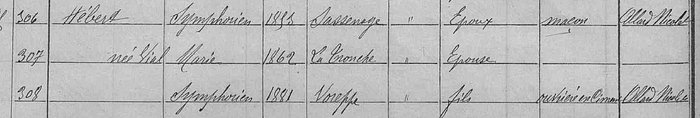 306 Hébert Symphorien 1853 Sassenage " Epoux maçon Allard Nicolet
307 née Vial Marie 1862 La Tronche " Epouse
308 Symphorien 1881 Voreppe " fils Allard Nicolet